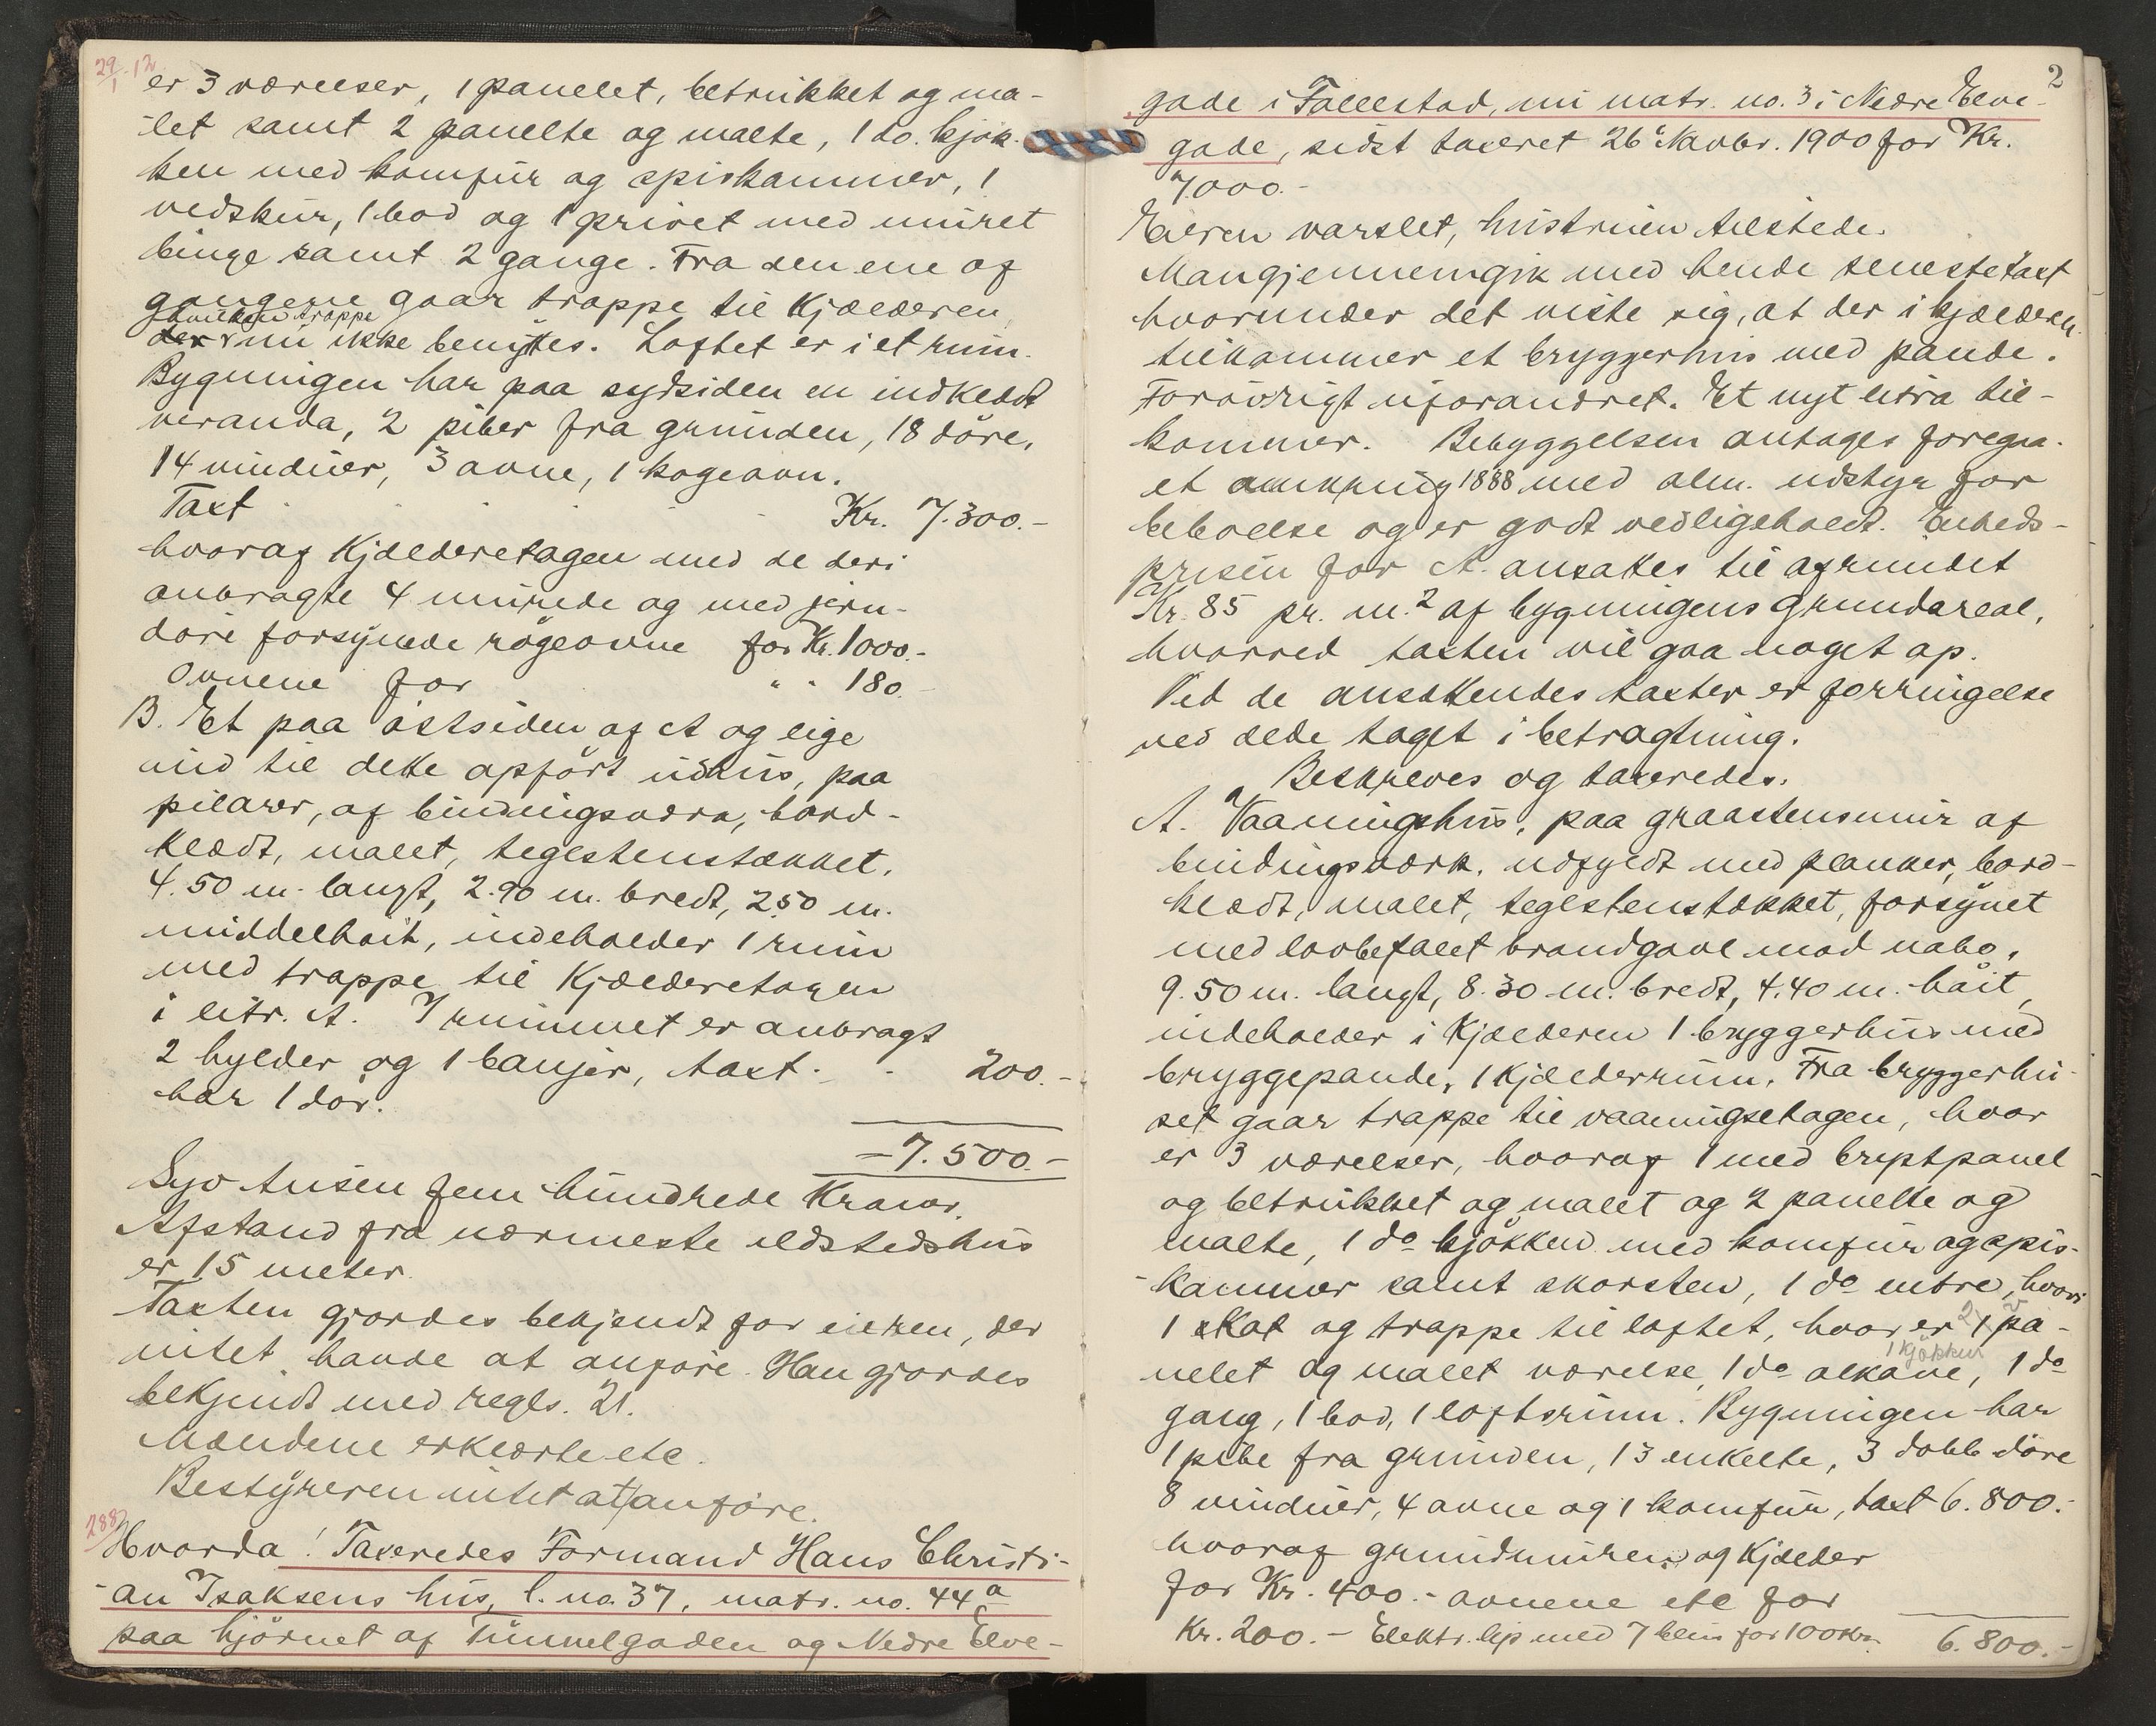 29/1 12
er 3 værelser, 1 panelet, betrukket og ma-
let samt 2 panelte og malte, 1 do. kjøk-
ken med komfur og spiskammer, 1
vedskur, 1 bod og 1 privet med muret
binge samt 2 gange. Fra den ene af
gangene gaar trappe til Kjælderen
hvilken trappe
der nu ikke benyttes. Loftet er i et rum.
Bygningen har paa sydsiden en indklædt
veranda, 2 piber fra grunden, 18 döre,
14 vinduer, 3 ovne, 1 kogeovn.
Taxt Kr. 7.300.-
hvoraf Kjælderetagen med de deri
anbragte 4 murede og med jern-
döre forsynede rögeovne for Kr. 1000.-
Ovnene for " " 180.-
B. Et paa östsiden af A og lige
ind til dette opfört udhus, paa
pilarer, af bindingsværk, bord-
klædt, malet, teglstenstækket,
4.50 m. langt, 2.90 m. bredt, 2.50 m.
middelhöit, indeholder 1 rum
med trappe til Kjælderetagen
i litr. A. I rummet er anbragt
2 hylder og 1 banjer, taxt . . 200.-
har 1 dör.
= 7.500.-
Syv tusen fem hundrede Kroner.
Afstand fra nærmeste ildstedshus
er 15 meter.
Taxten gjordes bekjendt for eieren, der
intet havde at anföre. Han gjordes
bekjendt med regls. 21.
Mændene erklærte etc.
Bestyreren intet at anföre.
288
Hvorda! Taxeredes Formand Hans Christi-
an Isaksens hus, l. no. 37, matr. no. 44a
paa hjörnet af Tunnelgaden og Nedre Elve-
2
gade i Tallestad, nu matr. no. 3 i Nedre Elve-
gade, sidst taxeret 26 Novbr. 1900 for Kr.
7000.-
Eieren varslet, hustruen tilstede.
Man gjennemgik med hende seneste taxt
hvorunder det viste sig, at der i kjælderen
tilkommer et bryggerhus med pande.
Forövrigt uforandret. Et nyt litra til-
kommer. Bebyggelsen antages foregaa-
et omkring 1888 med alm. udstyr for
beboelse og er godt vedligeholdt. Enheds-
prisen for A. ansattes til afrundet
Kr. 85 pr. m.2 af bygningens grundareal,
hvorved taxten vil gaa noget op.
Ved de ansættendes taxter er forringelse
ved ælde taget i betragtning.
Beskreves og taxeredes.
A. Vaaningshus, paa graastensmur af
bindingsværk, udfyldt med planker, bord-
klædt, malet, teglstenstækket, forsynet
med lovbefalet brandgavl mod nabo,
9.50 m. langt, 8.30 m. bredt, 4.40 m. höit,
indeholder i Kjælderen 1 bryggerhus med
bryggepande, 1 Kjælderrum. Fra bryggerhu-
set gaar trappe til vaaningsetagen, hvor
er 3 værelser, hvoraf 1 med brystpanel
og betrukket og malet og 2 panelte og
malte, 1 do kjökken med komfur og spis-
kammer samt skorsten, 1 do entre, hvori
1 skat og trappe til loftet, hvor er 1 pa-
2 v
1 kjökken
nelet og malet værelse, 1 do alkove, 1 do
gang, 1 bod, 1 loftsrum. Bygningen har
1 pibe fra grunden, 13 enkelte, 3 dobb. döre
8 vinduer, 4 ovne og 1 komfur, taxt 6.800.-
hvoraf grundmuren og Kjælder
for Kr. 400.- ovnene etc for
Kr. 200.- Elektr. lys med 7 blus for 100 Kr. 6.800.-